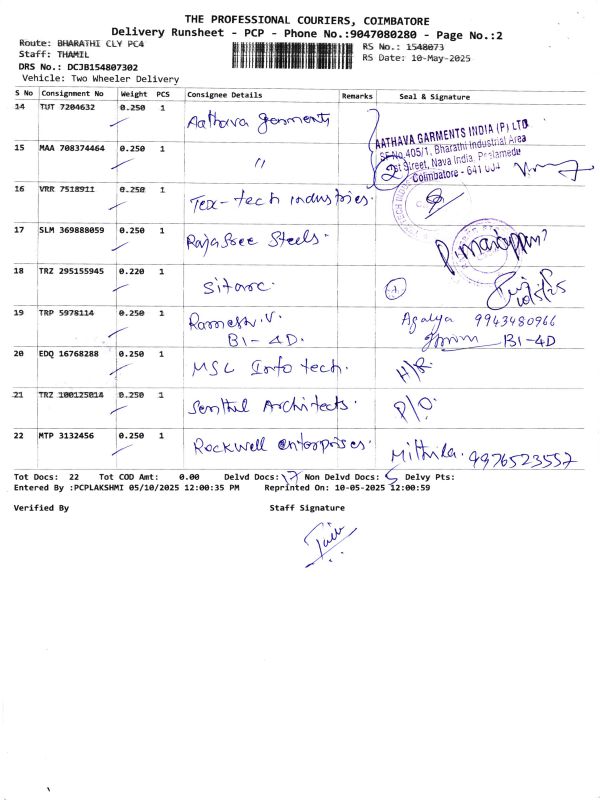 THE PROFESSIONAL COURIERS, COIMBATORE
Delivery Runsheet - PCP - Phone No.:9047080280 - Page No.:2
Route: BHARATHI CLY PC4
RS No.: 1548073
Staff: THAMIL
RS Date: 10-May-2025
DRS No.: DCJB154807302
Vehicle: Two Wheeler Delivery
S No Consignment No Weight PCS Consignee Details Remarks Seal & Signature
14 TUT 7204632 0.250 1 Aathava garments
AATHAVA GARMENTS INDIA (P) LTD
SF No.405/1, Bharathi Industrial Area
1st Street, Nava India, Peelamedu
Coimbatore - 641 004
15 MAA 708374464 0.250 1 " 2
16 VRR 7518911 0.250 1 Tex-tech industries.
17 SLM 369888059 0.250 1 Rajasree Steels.
18 TRZ 295155945 0.220 1 Sitarc.
10/5/25
19 TRP 5978114 0.250 1 Ramesh.V. Agalya 9943480966
B1-4D. B1-4D
20 EDQ 16768288 0.250 1 MSL Info tech. H/R.
21 TRZ 100125014 0.250 1 Senthil Architects. P/O.
22 MTP 3132456 0.250 1 Rockwell enterprises. Mithila. 9976523557
Tot Docs: 22 Tot COD Amt: 0.00 Delvd Docs: 17 Non Delvd Docs: 5 Delvy Pts:
Entered By :PCPLAKSHMI 05/10/2025 12:00:35 PM Reprinted On: 10-05-2025 12:00:59
Verified By Staff Signature